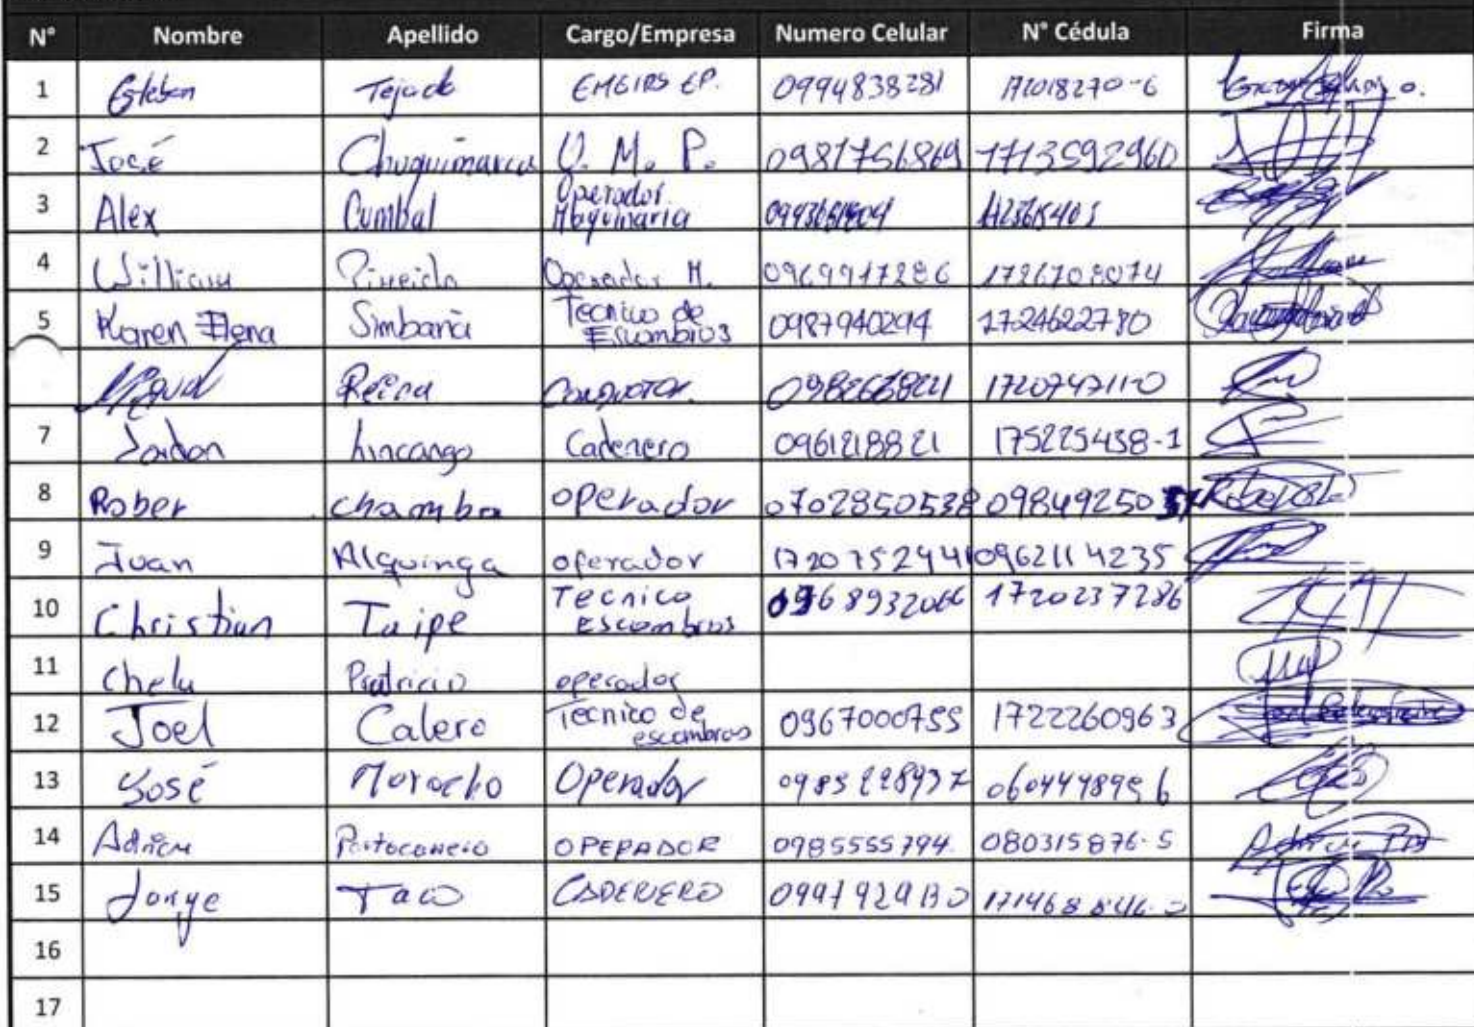 N° Nombre Apellido Cargo/Empresa Numero Celular N° Cédula Firma
1 Esteban Tejada EMGIRS EP. 0994838281 171018270-6
2 José Chuquimarca O. M. P. 0981756869 1713592960
3 Alex Cumbal Operador Maquinaria
4 William Operador M. 0969917286 1726708074
5 Karen Elena Simbaña Tecnico de Escombros 0987940294 1724622780
Miguel Reina Conductor. 1720747110
7 Lincango Cadenero 0961218821 175225438-1
8 Rober chamba operador 0702850538 09849250
9 Juan Alquinga operador 1720752941 0962114235
10 Christian Taipe Tecnico Escombros 0968932066 1720237286
11 Chela Patricio operador
12 Joel Calero Tecnico de escombros 0967000755 1722260963
13 José Morocho Operador 0985228937
14 Adrian Portocarrero OPERADOR 0985555794 080315876-5
15 Jorge Taco CADENERO
16
17